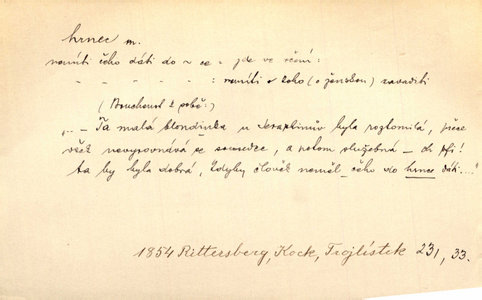 hrnec m.
nemíti čeho dáti do ~ ce - jde ve rčení:
- - - - - : nemíti o koho (o ženskou) zavaditi
(Bouchard k sobě:)
„ — Ta malá blondinka u Seraphinův byla roztomilá, přece
však nevyrovnává se sousedce, a potom služebná — ch pfi!
ta by byla dobrá, kdyby člověk neměl čeho do hrnce dáti...."
1854 Rittersberg, Kock, Trojlístek 231, 33.